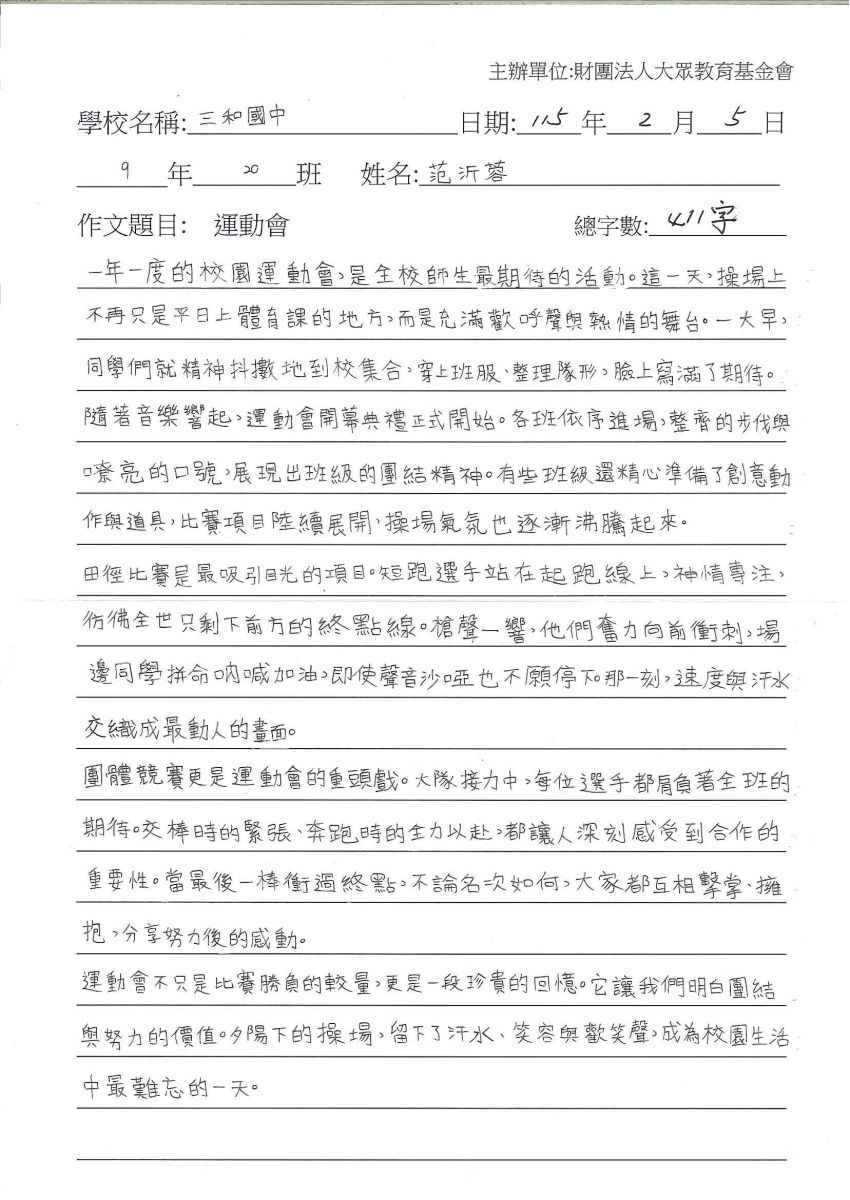 主辦單位:財團法人大眾教育基金會
學校名稱: 三和國中 日期: 115 年 2 月 5 日
9 年 20 班 姓名: 范沂蓉
作文題目: 運動會 總字數: 411字
一年一度的校園運動會,是全校師生最期待的活動。這一天,操場上
不再只是平日上體育課的地方,而是充滿歡呼聲與熱情的舞台。一大早,
同學們就精神抖擻地到校集合,穿上班服、整理隊形,臉上寫滿了期待。
隨著音樂響起,運動會開幕典禮正式開始。各班依序進場,整齊的步伐與
嘹亮的口號,展現出班級的團結精神。有些班級還精心準備了創意動
作與道具,比賽項目陸續展開,操場氣氛也逐漸沸騰起來。
田徑比賽是最吸引目光的項目。短跑選手站在起跑線上,神情專注,
彷彿全世只剩下前方的終點線。槍聲一響,他們奮力向前衝刺,場
邊同學拼命吶喊加油,即使聲音沙啞也不願停下。那一刻,速度與汗水
交織成最動人的畫面。
團體競賽更是運動會的重頭戲。大隊接力中,每位選手都肩負著全班的
期待。交棒時的緊張、奔跑時的全力以赴,都讓人深刻感受到合作的
重要性。當最後一棒衝過終點,不論名次如何,大家都互相擊掌、擁
抱,分享努力後的感動。
運動會不只是比賽勝負的較量,更是一段珍貴的回憶。它讓我們明白團結
與努力的價值。夕陽下的操場,留下了汗水、笑容與歡笑聲,成為校園生活
中最難忘的一天。